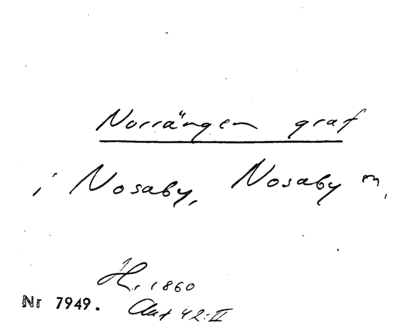 Norrängen graf
i Nosaby, Nosaby sn,
H. 1860
Nr 7949. Akt 42:II